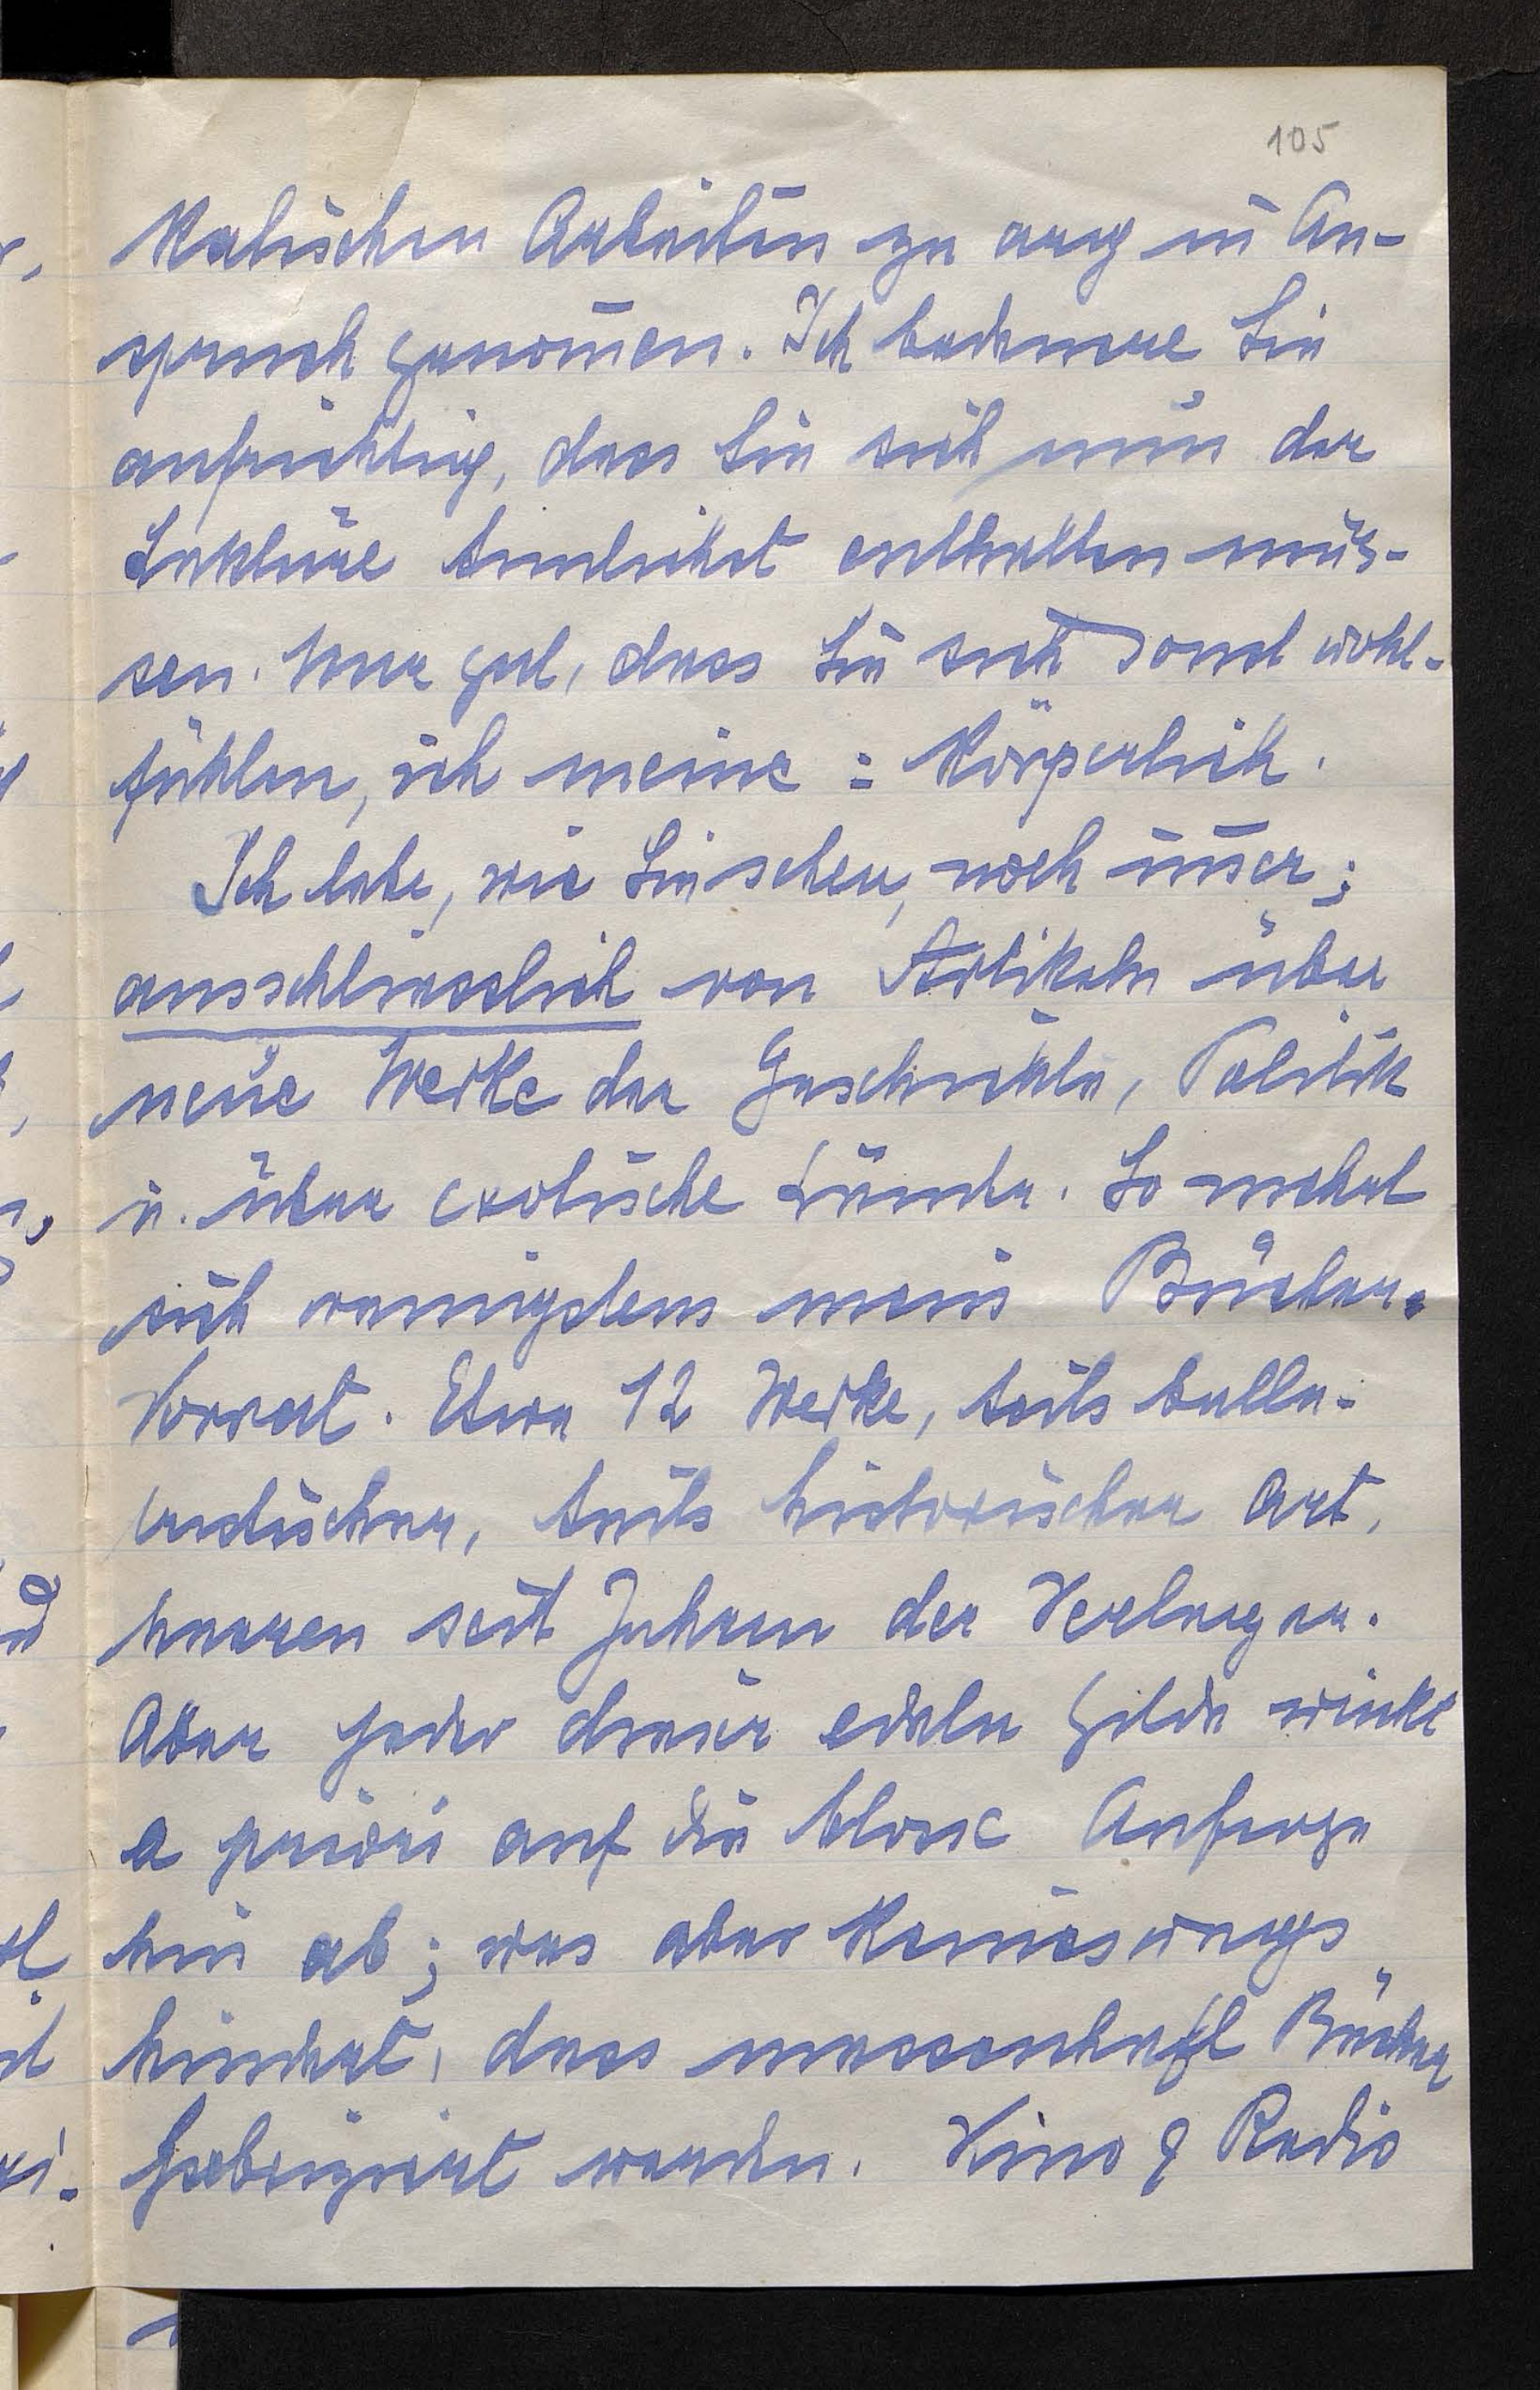 105
kalischen Arbeiten zu arg in An-
spruch genom̅en. Ich bedauere Sie
aufrichtig, dass Sie sich nun der
Lektüre tunlichst enthalten müs-
sen. Nur gut, dass Sie sich sonst wohl-
fühlen, ich meine: körperlich.
Ich lebe, wie Sie sehen, noch im̅er;
ausschliesslich von Artikeln über
neue Werke der Geschichte, Politik
u. über exotische Länder. So mehrt
sich wenigstens mein Bücher-
Vorrat. Etwa 12 Werke, teils belle-
tristischer, teils historischer Art,
harren seit Jahren der Verleger.
Aber jeder dieser edeln Gilde winkt
a priori auf die blosse Anfrage
hin ab; was aber keineswegs
hindert, dass massenhaft Bücher
fabriziert werden. Kino & Radio